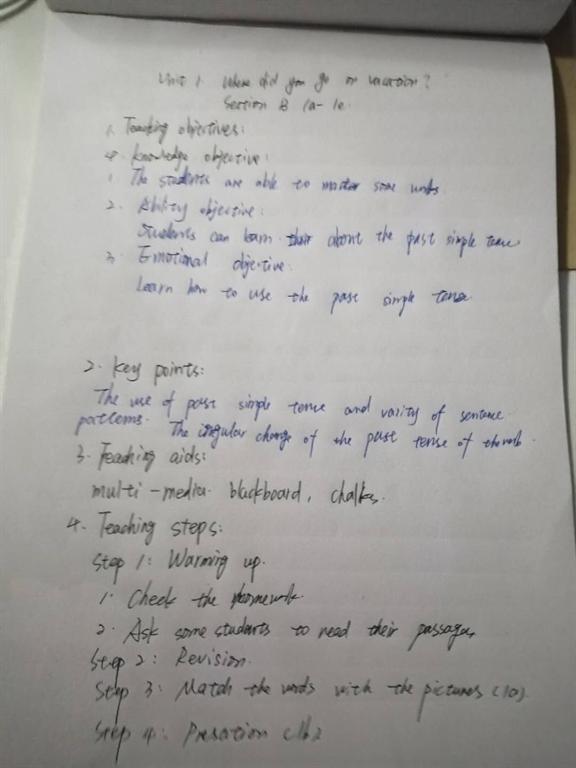 Unit 1 Where did you go on vacation?
Section B 1a-1e.
1. Teaching objectives:
knowledge objective:
1. The students are able to master some words.
2. Ability objective:
Students can learn about the past simple tense
3. Emotional objective:
Learn how to use the past simple tense
2. key points:
The use of past simple tense and varity of sentence
patterns. The irregular change of the past tense of the verb.
3. Teaching aids:
multi-media. blackboard, chalks.
4. Teaching steps:
Step 1: Warming up.
1. Check the homework.
2. Ask some students to read their passages
Step 2: Revision.
Step 3: Match the words with the pictures (1a).
Step 4: Presation (1b)